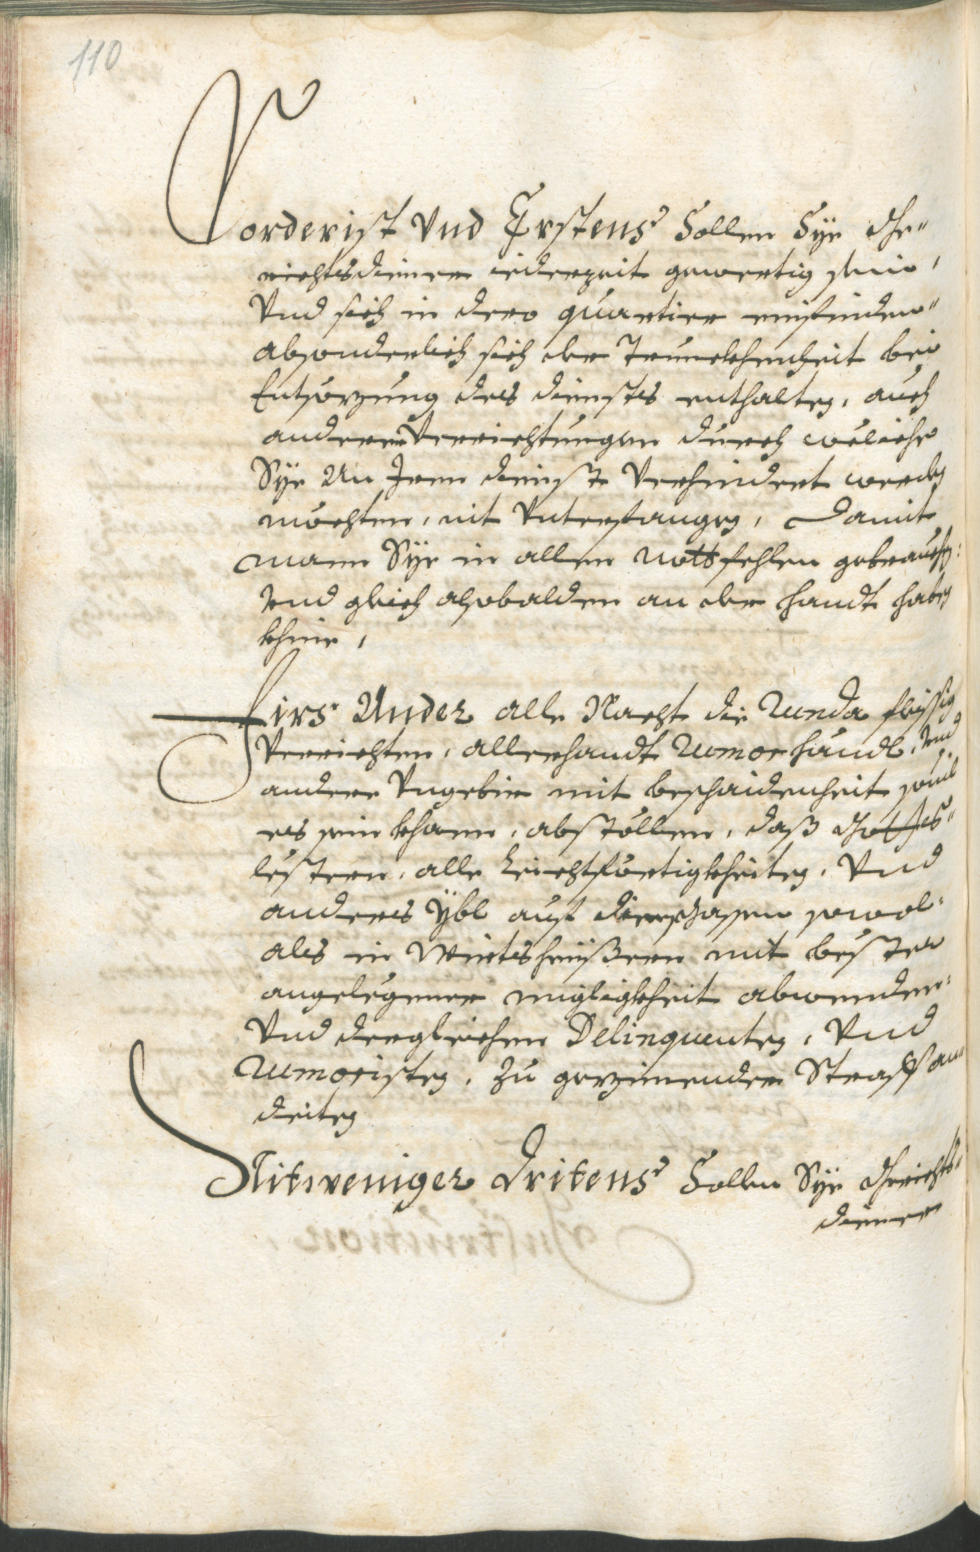 110
Vorderist Vnd Erstens Sollen Sÿe Ge-
richtsdiener iederzeit gewertig sein,
Vnd sich in dero quartier einfinden
absonderlich sich der Trunckhenheit bei
Entsezung des diensts enthalten, auch
anderen Verrichtungen durch weliche
Sÿe An Irem dienst Verhindert werden
möchten, nit Vnterfangen, damit
mann Sÿe in allen nottsfehlen gebrauchen:
Vnd gleich alsobalden an der handt haben
khine,
Firs Ander alle Nacht die Runda fleissig
Verrichten, allerhandt Rumorhändl, Vnd
andere Vngebir mit beschaidenheit souil
es sein khann, abstöllen, daß Gottes-
lestern, alle Leichtfertigkheiten, Vnd
anders Ÿbl auf der gassen sowol
als in Wirtsheüßern mit bester
angelegener migligkheit abwenden
Vnd dergleichen Delinquenten, Vnd
Rumoristen, zu gezimender Straff an-
deiten
Nitweniger Dritens Sollen Sÿe Grichts-
diener